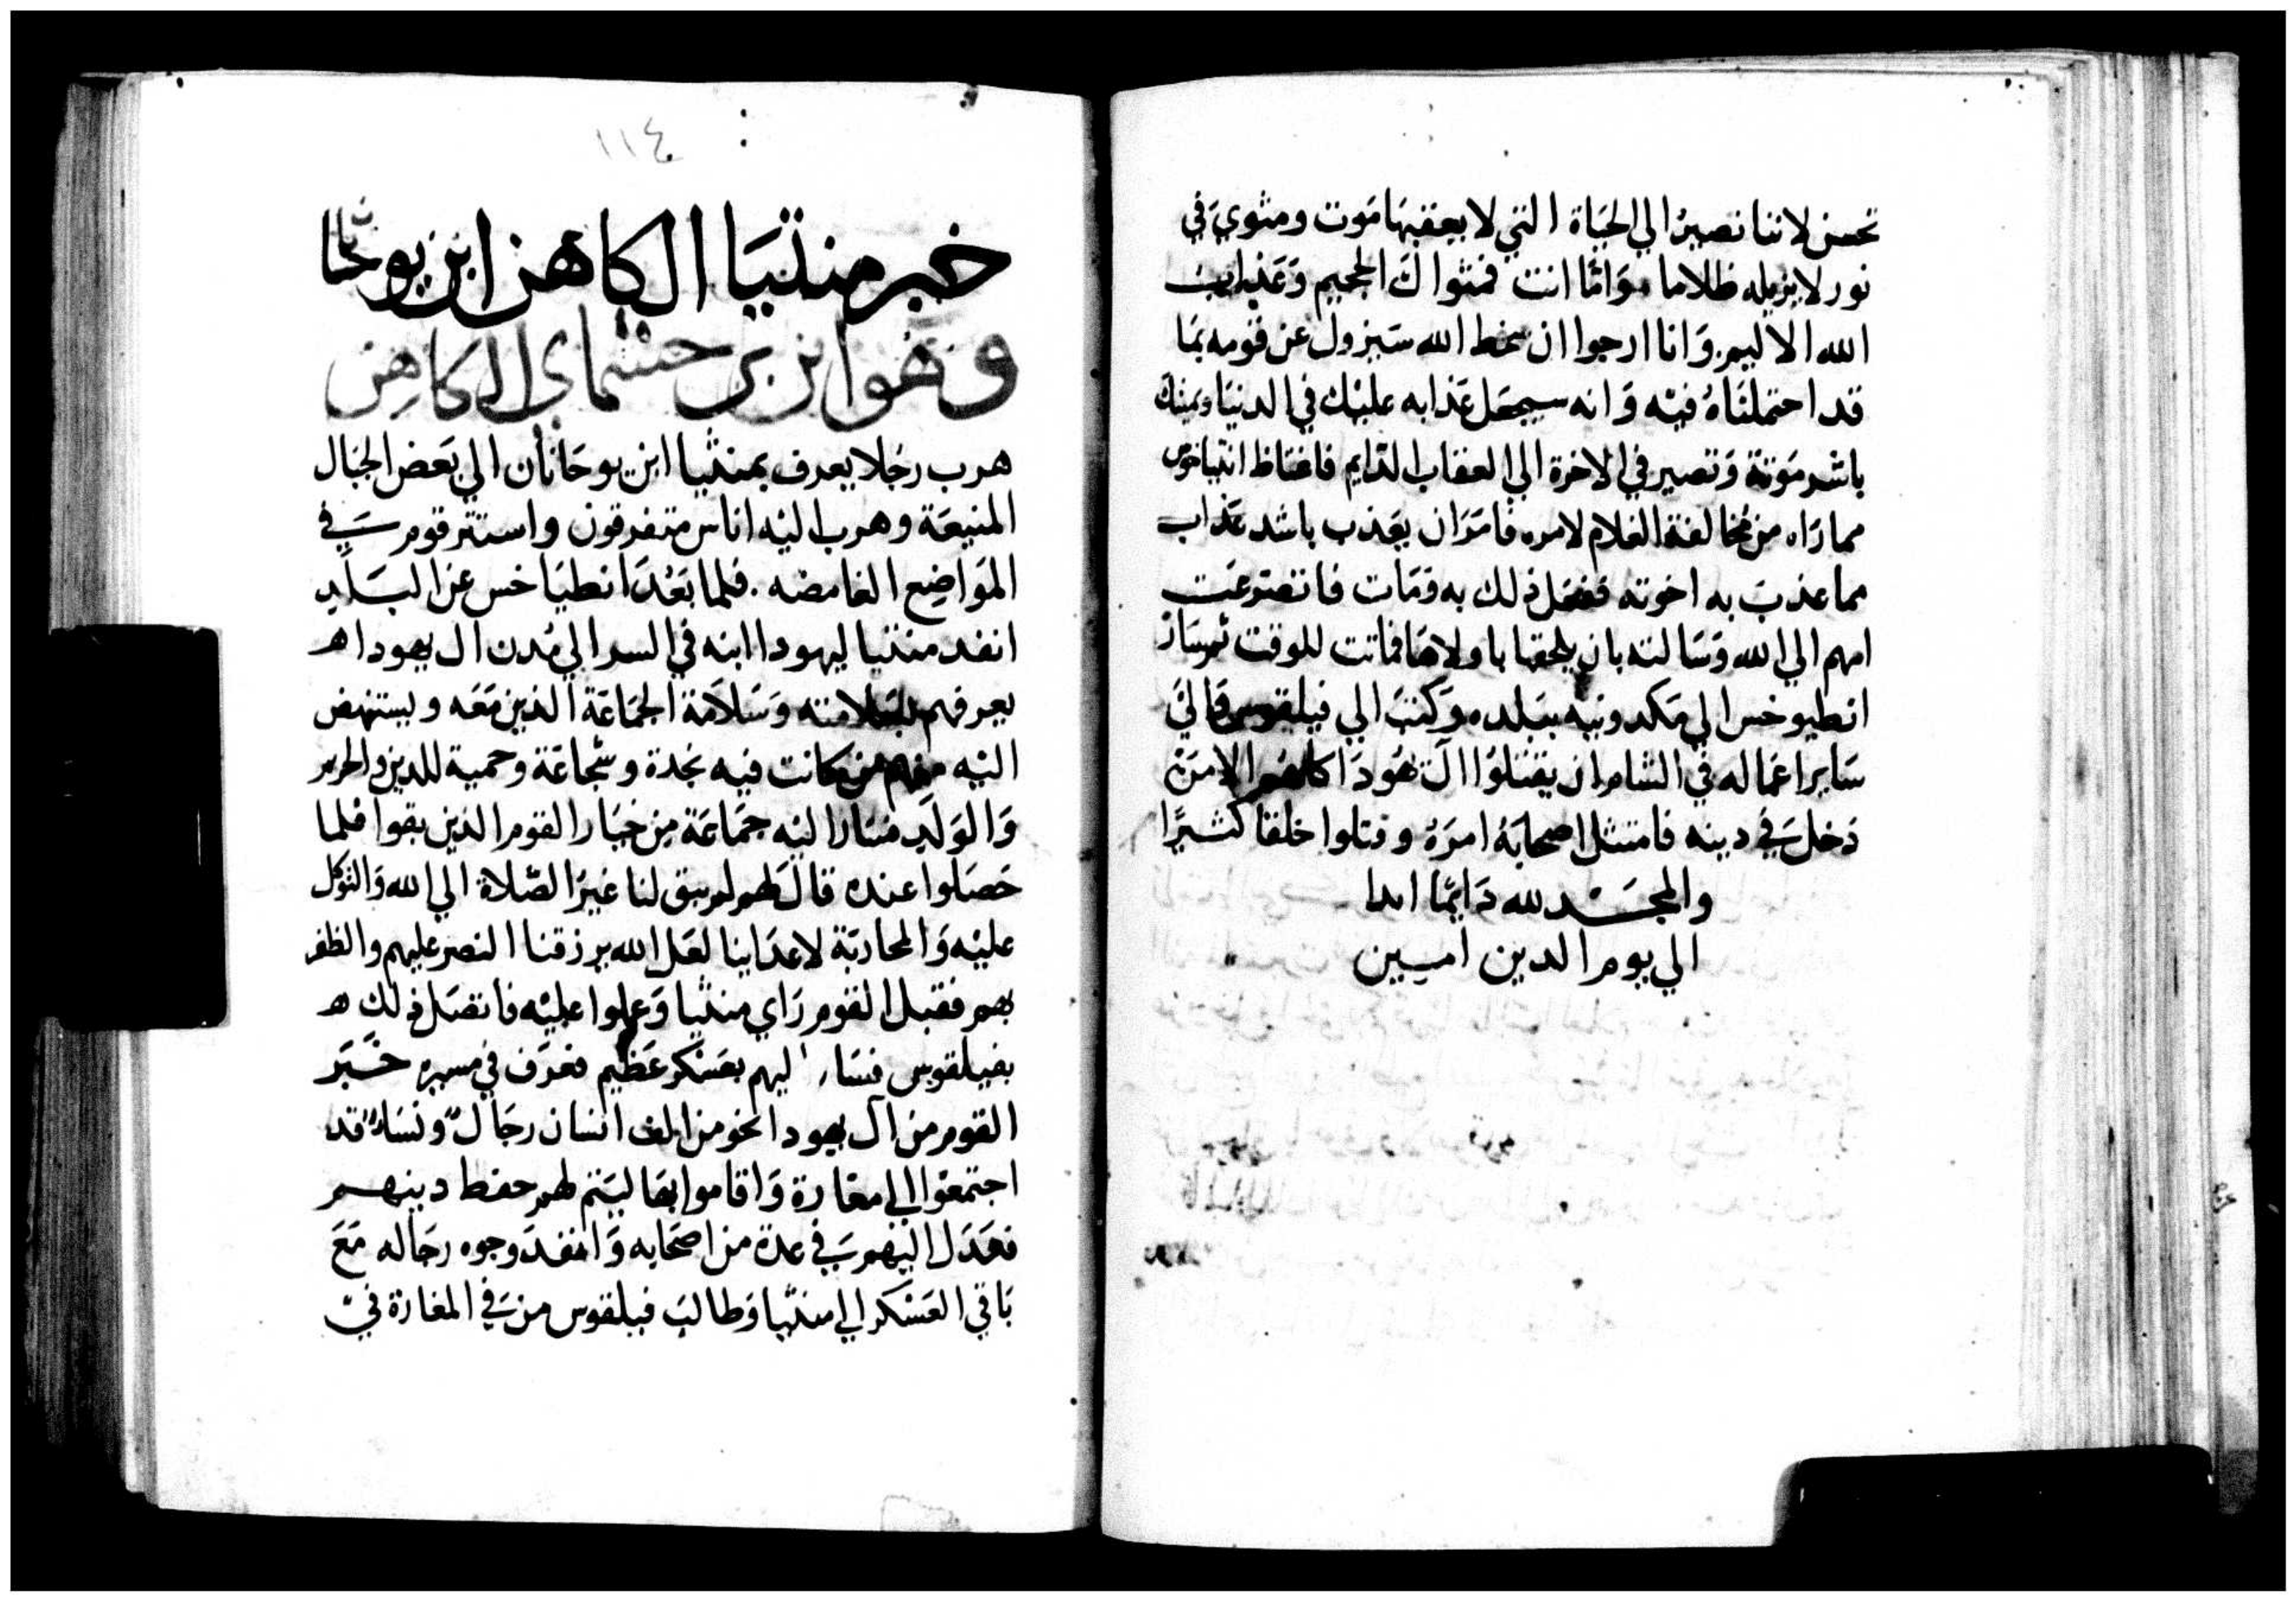 نحسن لاننا نصير الي الحياة التي لا يعقبها موت ومثوي في
نور لا يزيله ظلاما واما انت فمثواك الجحيم وعذاب
الله الاليم وانا ارجوا ان سخط الله سيزول عن قومه بما
قد احتملناه فيه وانه سيجعل عذابه عليك في الدنيا ويميتك
باشر موتة وتصير في الاخرة الي العقاب الدايم فاغتاظ انتياخوس
مما راه من مخالفة الغلام لامره فامر ان يعذب باشد عذاب
مما عذب به اخوته ففعل ذلك به ومات فانضرعت
امهم الي الله وسالته بان يلحقها باولادها فماتت للوقت ثم سار
انطيوخس الي مكدونيه بلده وكتب الي فيلقوس والي
ساير اعماله في الشام ان يقتلوا ال هودا كلهم الا من
دخل في دينه فامتثل اصحابه امره وقتلوا خلقا كثيرا
والمجد لله دايما ابدا
الي يوم الدين امين
١١٤
خبر متتيا الكاهن ابن يوحنا
وهو ابن حشماي الكاهن
هرب رجلا يعرف بمتثيا ابن يوحانان الي بعض الجبال
المنيعة وهرب اليه اناس متفرقون واستتر قوم في
المواضع الغامضه . فلما بعد انطياخس عن البلد
انفد متتيا ليهودا ابنه في السر الي مدن ال يهودا
يعرفهم بسلامته وسلامة الجماعة الذين معه ويستنهض
اليه منهم من كانت فيه نجدة وشجاعة وحمية للدين والحرم
والولد فسار اليه جماعة من خيار القوم الذين بقوا فلما
حصلوا عنده قال لهم لم يبق لنا غير الصلاة الي الله والتوكل
عليه والمحاربة لاعداينا لعل الله يرزقنا النصر عليهم والظفر
بهم فقبل القوم راي متثيا وعملوا عليه فاتصل ذلك
بفيلقوس فسار اليهم بعسكر عظيم فعرف في مسيره خبر
القوم من ال يهودا نحو من الف انسان رجال ونساء قد
اجتمعوا الي مغارة واقاموا بها ليتم لهم حفظ دينهم
فعدل اليهم في عدة من اصحابه وانفد وجوه رجاله مع
باقي العسكر الي متثيا وطالب فيلقوس من في المغارة في